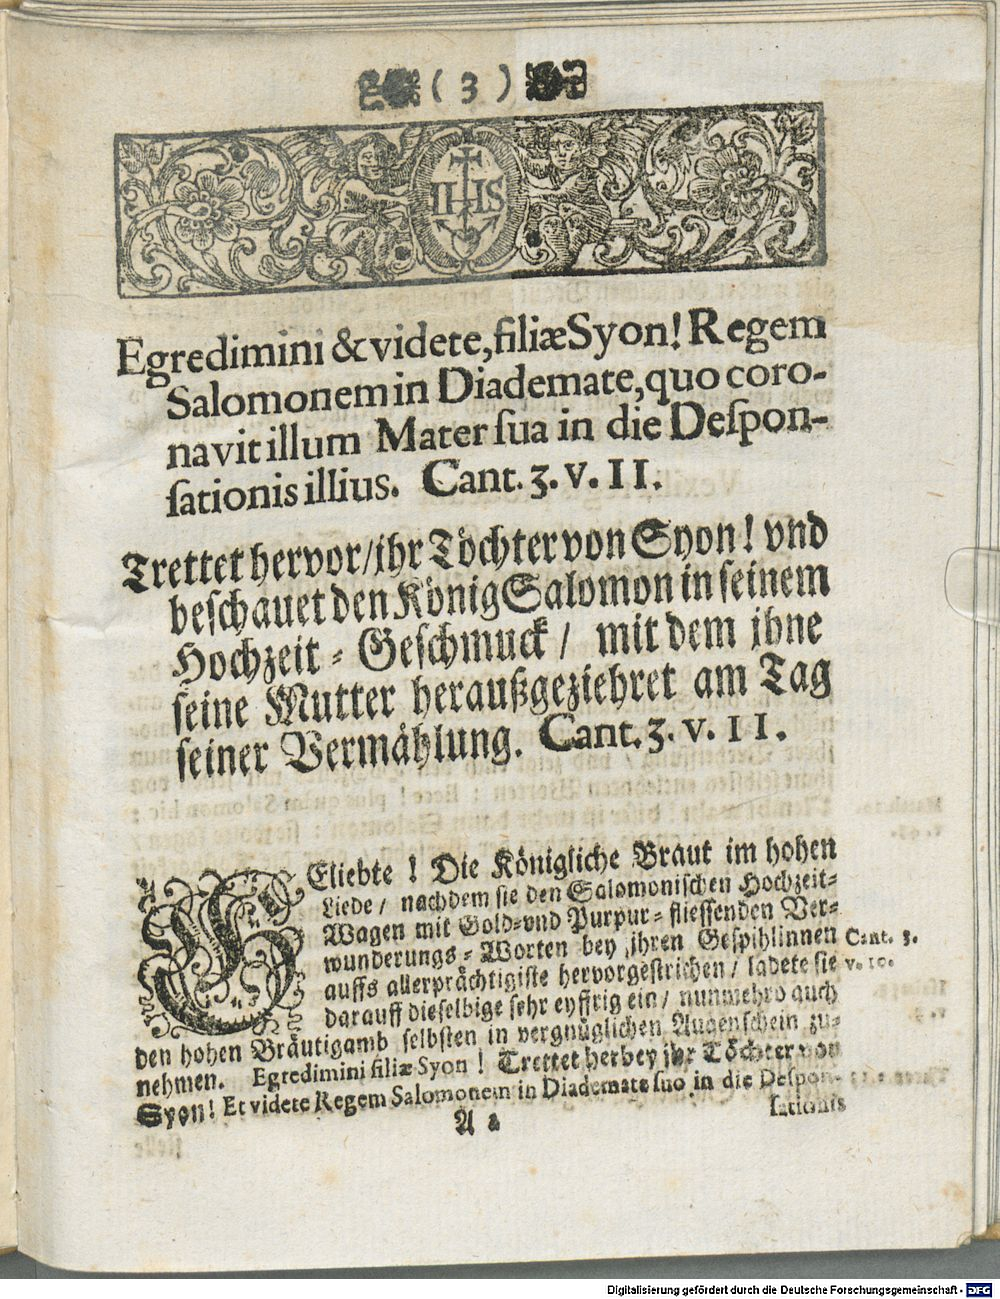 ( 3 )
IHS
Egredimini & videte, filiæ Syon! Regem
Salomonem in Diademate, quo coro-
navit illum Mater sua in die Despon-
sationis illius. Cant. 3. v. 11.
Trettet hervor / ihr Töchter von Syon! vnd
beschauet den König Salomon in seinem
Hochzeit-Geschmuck / mit dem jhne
seine Mutter heraußgeziehret am Tag
seiner Vermählung. Cant. 3. v. 11.
GEliebte! Die Königliche Braut im hohen
Liede / nachdem sie den Salomonischen Hochzeit-
Wagen mit Gold-vnd Purpur-fliessenden Ver-
wunderungs-Worten bey ihren Gespihlinnen Cant. 3.
auffs allerprächtigiste hervorgestrichen / ladete sie v. 10.
darauff dieselbige sehr eyffrig ein / nunmehro auch
den hohen Bräutigamb selbsten in vergnüglichen Augenschein zu-
nehmen. Egredimini filiæ Syon! Trettet herbey jhr Töchter von
Syon! Et videte Regem Salomonem in Diademate suo in die Despon-
A 2 sationis
Digitalisierung gefördert durch die Deutsche Forschungsgemeinschaft - DFG